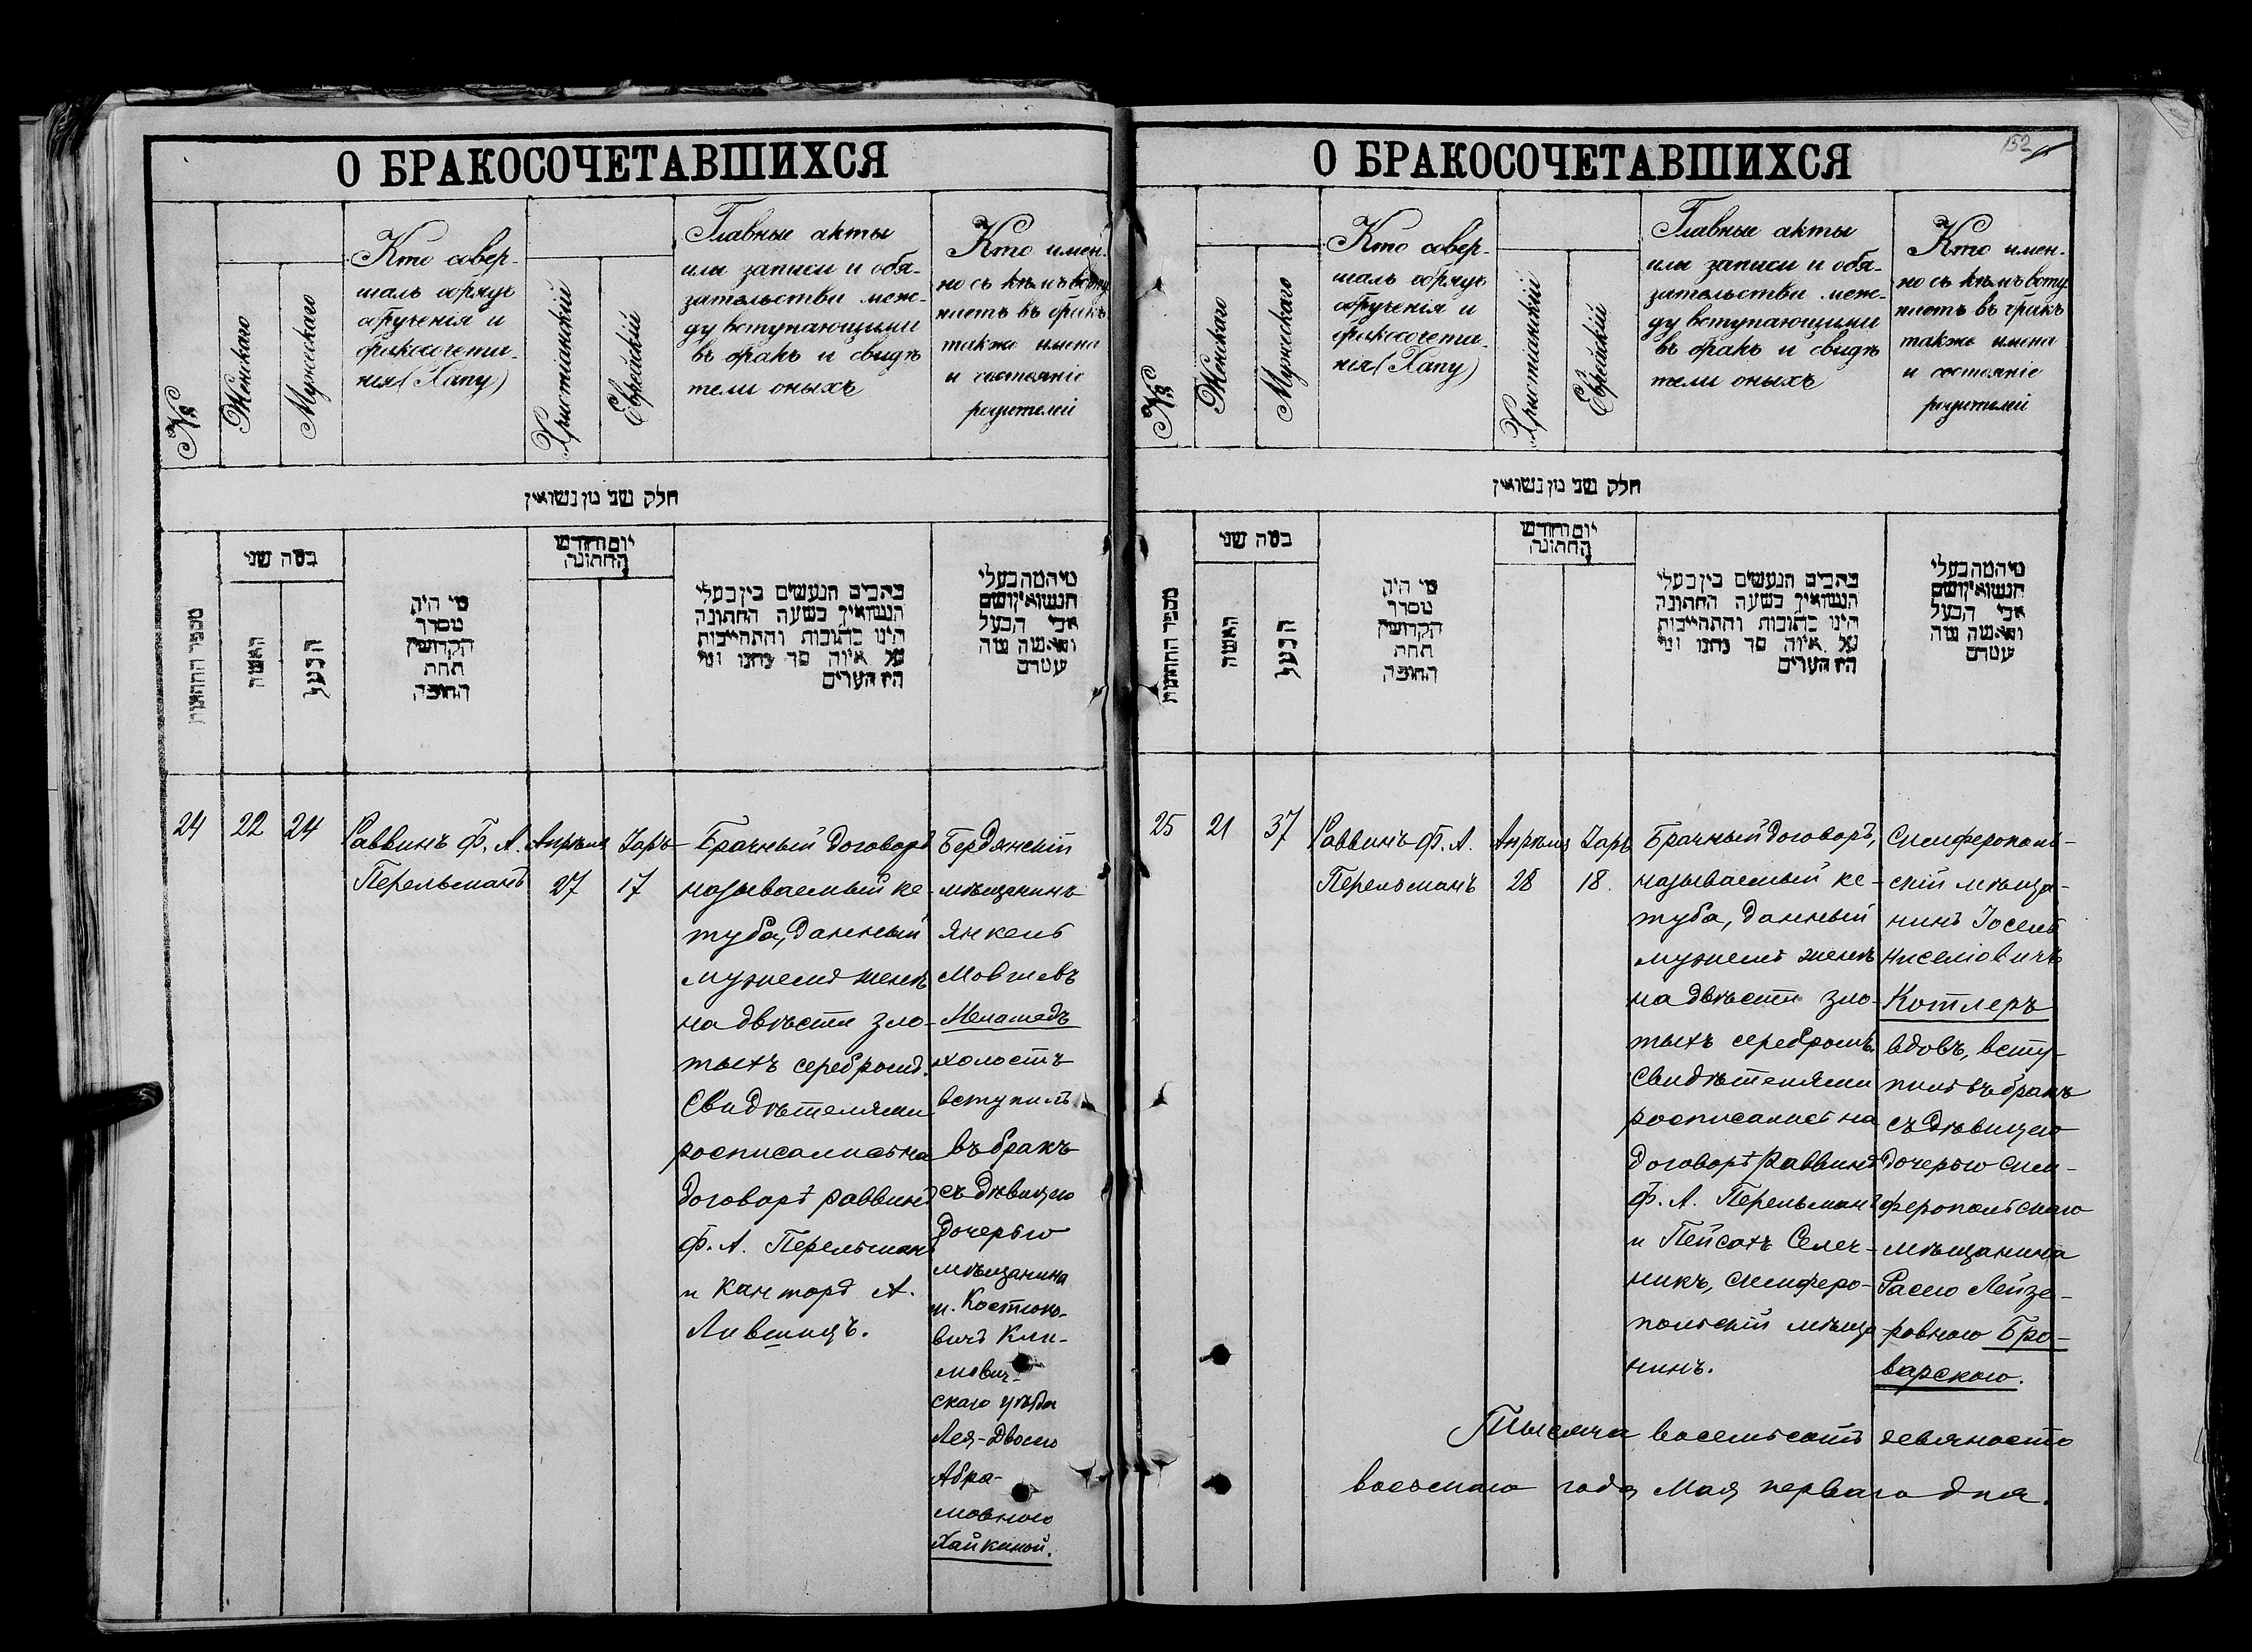 О БРАКОСОЧЕТАВШИХСЯ
№
Женскаго
Мужескаго
Кто совер-
шалъ обрядъ
обрученія и
бракосочета-
нія (Хапу)
Христіанскій
Еврейскій
Главные акты
или записи и обя-
зательства меж-
ду вступающими
въ бракъ и свидѣ
тели оныхъ
Кто имен-
но съ кѣмъ всту
паетъ въ бракъ
также имена
и состояніе
родителей
חלק שני מן נשואין
מספר החתונות
כמה שני
האשה
הבעל
מי היה
מסדר
הקדושין
תחת
החופה
יום וחודש
החתונה
הנעשים בין בעלי
הנשואין בשעה החתונה
היינו כתובות והתחייבות
מי המה בעלי
הנשואין ושם
אבי הבעל
24
22
24
Раввинъ Ф. А.
Перельманъ
Апрѣля
27
Іаръ
17
Брачный договоръ
называемый ке-
туба, данный
мужемъ женѣ
на двѣсти зло-
тыхъ серебромъ.
Свидѣтелями
росписались на
договорѣ раввинъ
Ф. А. Перельманъ
и Канторъ А.
Лившицъ.
Бердянскій
мѣщанинъ
Янкель
Мовшевъ
Меламедъ
холостъ
вступилъ
въ бракъ
съ дѣвицею
дочерью
мѣщанина
м. Костюко-
вичъ Кли-
мович-
скаго уѣзда
Лея-Двосею
Абра-
мовною
Хайкиной.
152
О БРАКОСОЧЕТАВШИХСЯ
№
Женскаго
Мужескаго
Кто совер-
шалъ обрядъ
обрученія и
бракосочета-
нія (Хапу)
Христіанскій
Еврейскій
Главные акты
или записи и обя-
зательства меж-
ду вступающими
въ бракъ и свидѣ
тели оныхъ
Кто имен-
но съ кѣмъ всту
паетъ въ бракъ
также имена
и состояніе
родителей
חלק שני מן נשואין
מספר החתונות
כמה שני
האשה
הבעל
מי היה
מסדר
הקדושין
תחת
החופה
יום וחודש
החתונה
הנעשים בין בעלי
הנשואין בשעה החתונה
היינו כתובות והתחייבות
מי המה בעלי
הנשואין ושם
אבי הבעל
25
21
37
Раввинъ Ф. А.
Перельманъ
Апрѣля
28
Іаръ
18.
Брачный договоръ,
называемый ке-
туба, данный
мужемъ женѣ
на двѣсти зло-
тыхъ серебромъ.
Свидѣтелями
росписались на
договорѣ Раввинъ
Ф. А. Перельманъ
и Пейсахъ Селеч-
никъ, симферо-
польскій мѣща
нинъ.
Симферополь-
скій мѣща-
нинъ Іосель
Ниселіовичъ
Котлеръ
вдовъ, всту-
пилъ въ бракъ
съ дѣвицею
дочерью Сим-
феропольскаго
мѣщанина
Расею Лейзе-
ровною Бро-
варскою.
Тысяча восемьсотъ девяносто
восьмаго года Мая перваго дня.